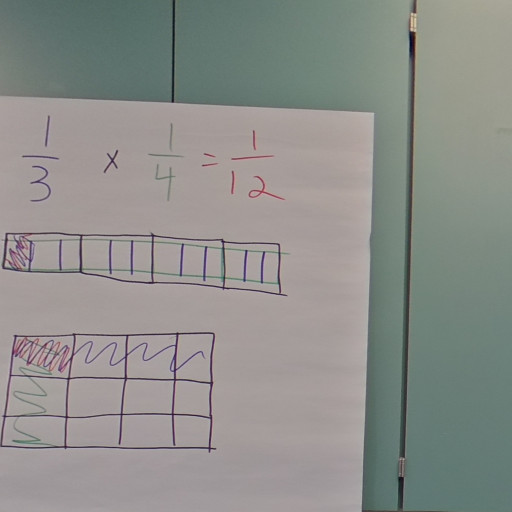 1/3 x 1/4 = 1/12